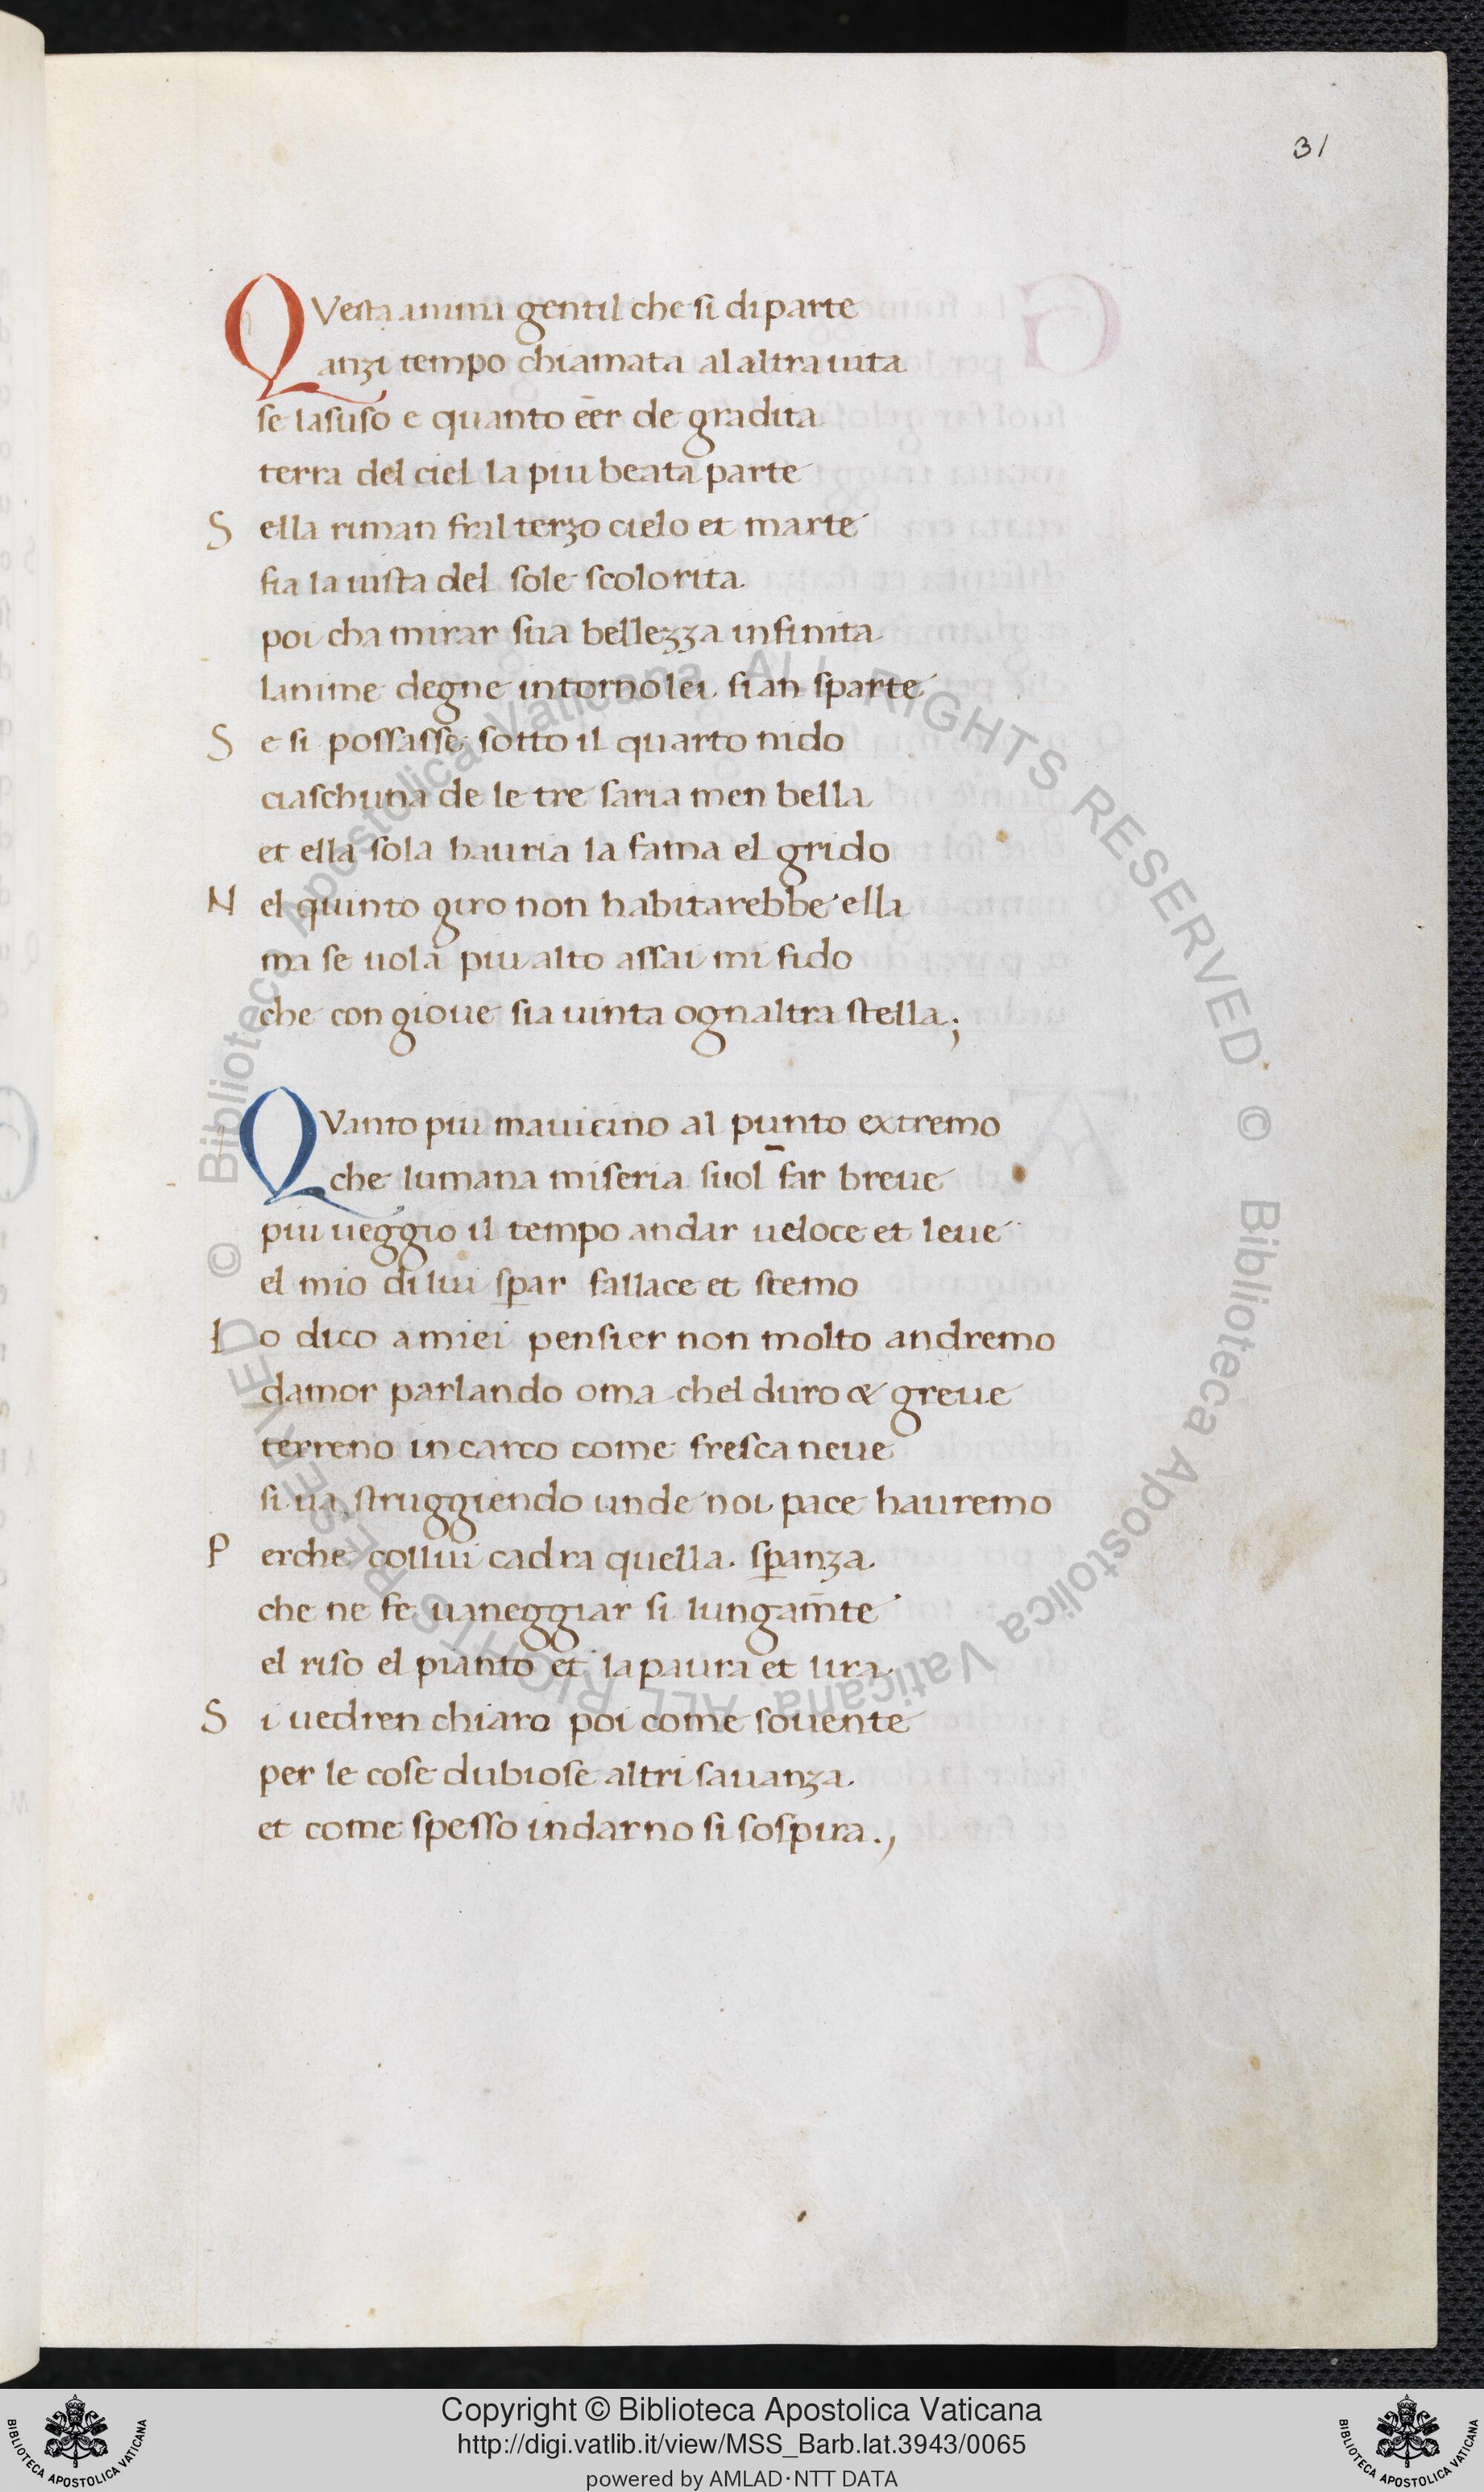 31
QVesta anima gentil che si diparte
anzi tempo chiamata al altra uita
se lasuso e quanto eēr de gradita
terra del ciel la piu beata parte
S ella riman fral terzo cielo et marte
fia la uista del sole scolorita
poi cha mirar sua bellezza infinita
lanime degne intorno lei sian sparte
S e si possasse sotto il quarto nido
ciaschuna de le tre saria men bella
et ella sola hauria la fama el grido
N el quinto giro non habitarebbe ella
ma se uola piu alto assai mi fido
che con gioue sia uinta ognaltra stella;
QVanto piu mauicino al punto extremo
che lumana miseria suol far breue
piu ueggio il tempo andar ueloce et leue
el mio di lui sꝑar fallace et scemo
I o dico a miei pensier non molto andremo
damor parlando oma chel duro & greue
terreno incarco come fresca neue
si ua struggiendo unde noi pace hauremo
P erche collui cadra quella. sꝑanza.
che ne fe uaneggiar si lungam̄te
el riso el pianto et la paura et lira.
S i uedren chiaro poi come souente
per le cose dubiose altri sauanza.
et come spesso indarno si sospira.,
© Biblioteca Apostolica Vaticana ALL RIGHTS RESERVED
© Biblioteca Apostolica Vaticana ALL RIGHTS RESERVED
Copyright © Biblioteca Apostolica Vaticana
http://digi.vatlib.it/view/MSS_Barb.lat.3943/0065
powered by AMLAD·NTT DATA
BIBLIOTECA APOSTOLICA VATICANA
BIBLIOTECA APOSTOLICA VATICANA